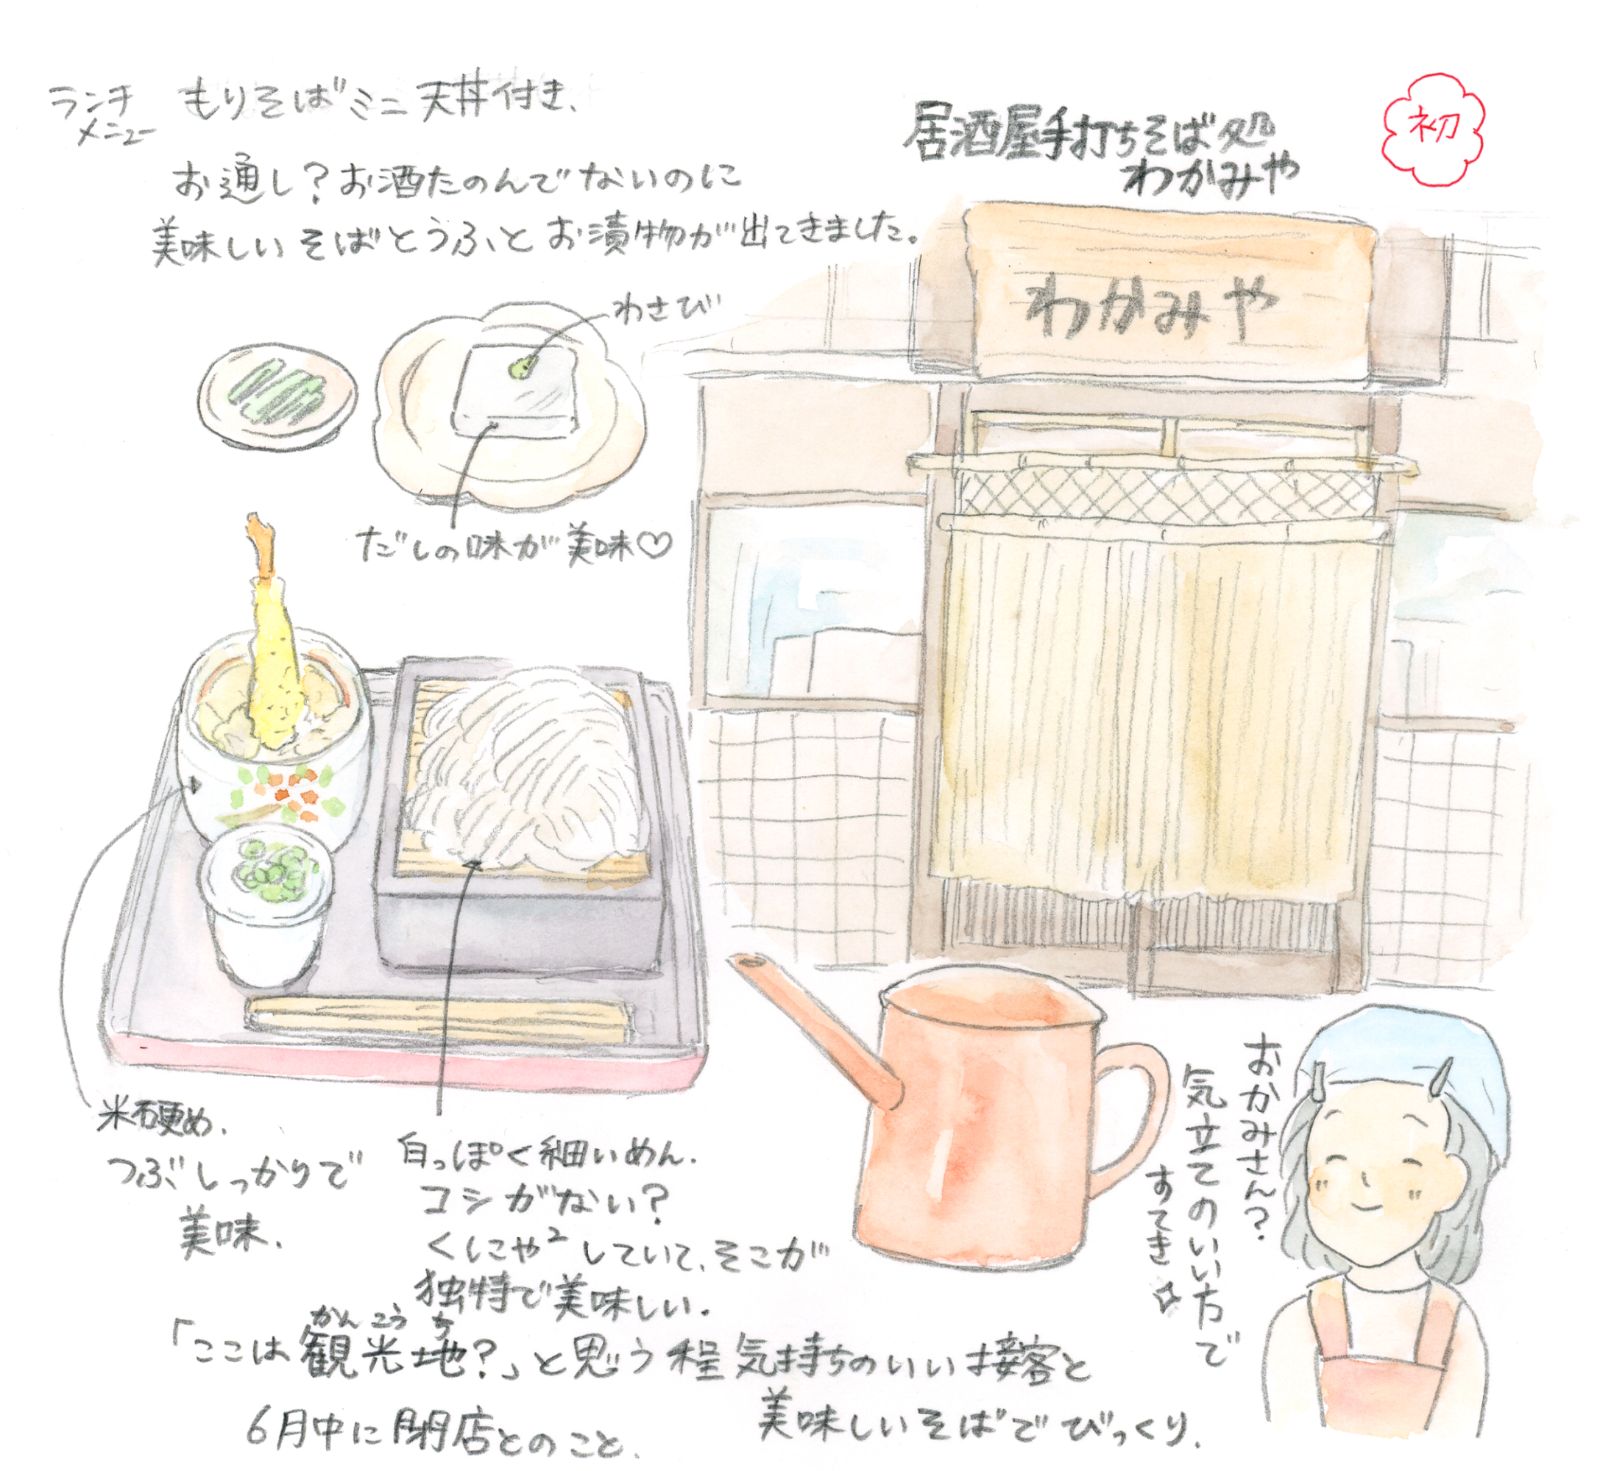 ランチ
メニュー
もりそばミニ天丼付き、
お通し？お酒たのんでないのに
美味しいそばとうふとお漬物が出てきました。
居酒屋手打ちそば処
わかみや
初
わかみや
わさび
だしの味が美味♡
米硬め、
つぶしっかりで
美味、
白っぽく細いめん、
コシがない？
くにゃ²していて、そこが
独特で美味しい。
おかみさん？
気立てのいい方で
すてき☆
かんこうち
「ここは観光地？」と思う程気持ちのいい接客と
美味しいそばでびっくり、
6月中に閉店とのこと、